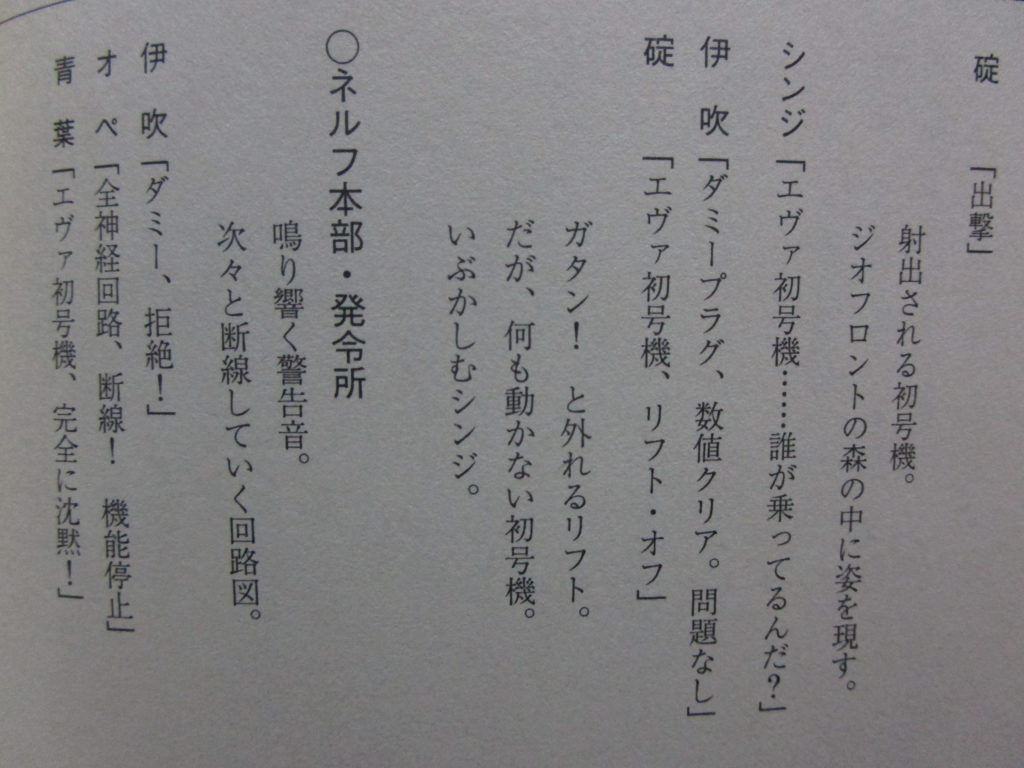 碇　　「出撃」
射出される初号機。
ジオフロントの森の中に姿を現す。
シンジ「エヴァ初号機……誰が乗ってるんだ？」
伊　吹「ダミープラグ、数値クリア。問題なし」
碇　　「エヴァ初号機、リフト・オフ」
ガタン！　と外れるリフト。
だが、何も動かない初号機。
いぶかしむシンジ。
○ネルフ本部・発令所
鳴り響く警告音。
次々と断線していく回路図。
伊　吹「ダミー、拒絶！」
オ　ペ「全神経回路、断線！　機能停止」
青　葉「エヴァ初号機、完全に沈黙！」